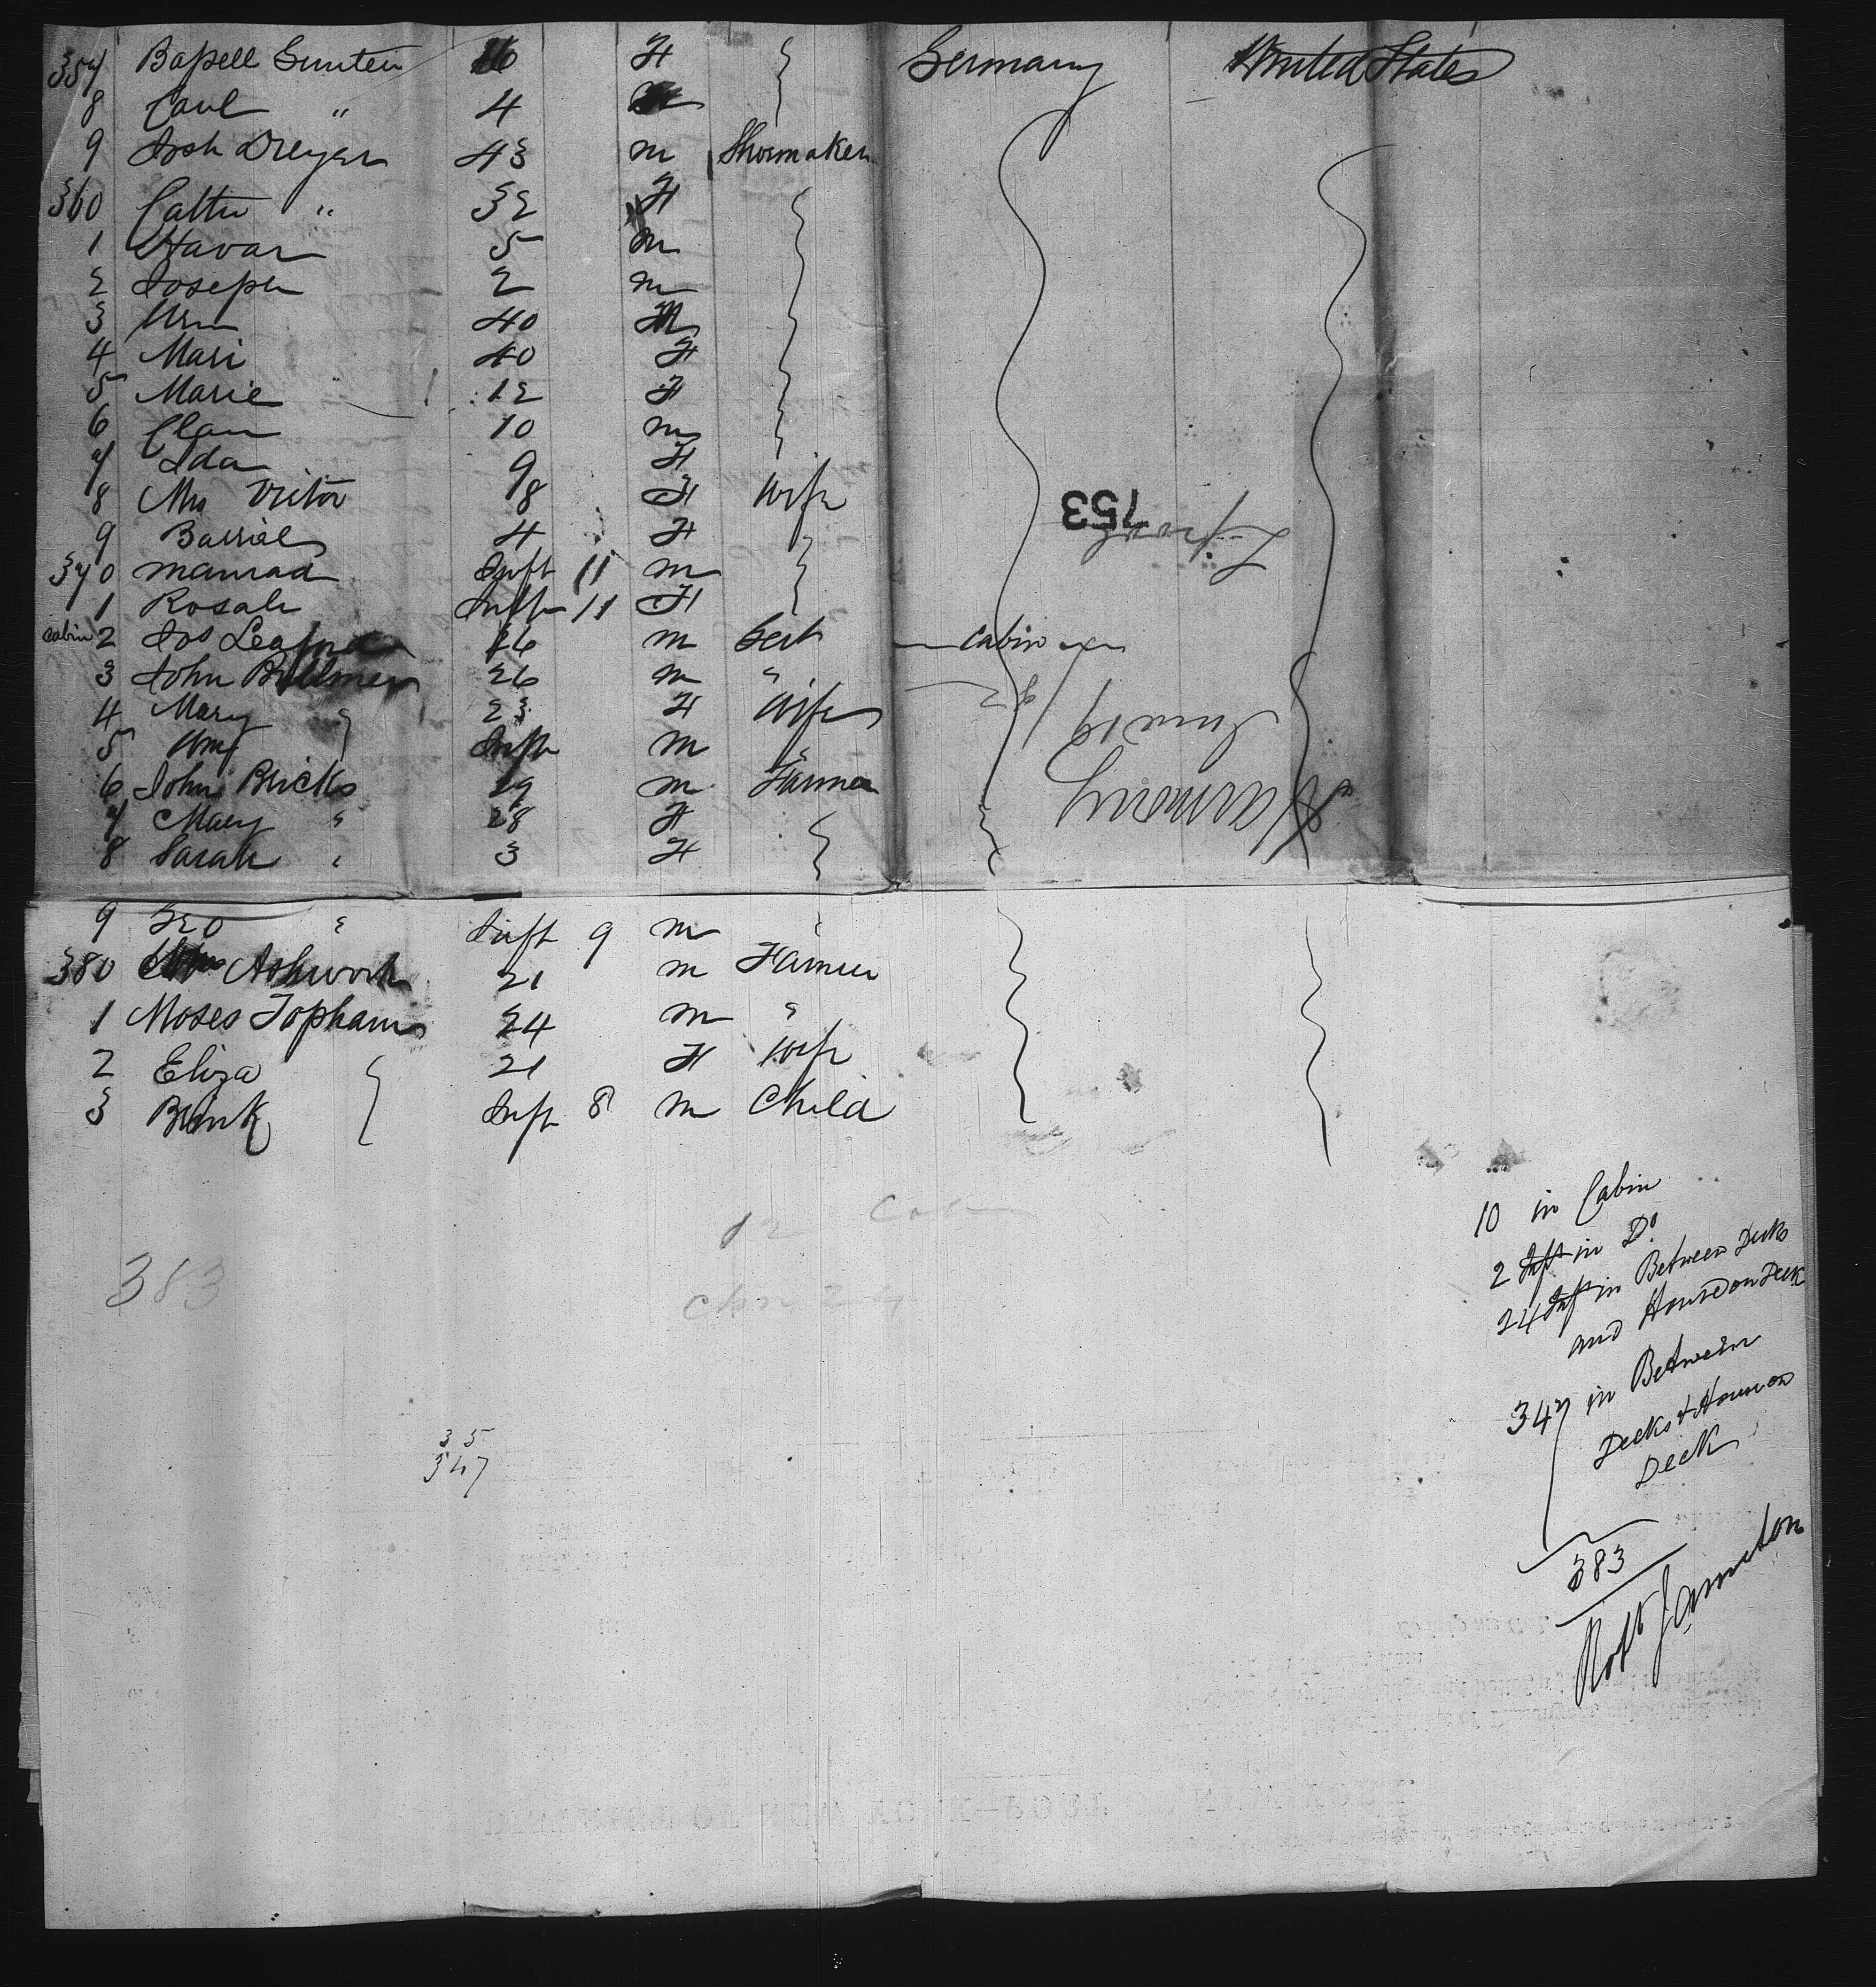 357 Bassell Gunten 16 F } Germany United States
8 Paul " 4
9 Josh Dreyer 43 m Shoemaker
360 Cathr " 32 F
1 Havar 5 m
2 Joseph 2 m
3 40
4 Mari 40 F
5 Marie 12 F
6 10 m
7 Ida 9 F
8 Mrs Victor 98 F Wife
9 4 F
370 Inft 11 m
1 Rosali Infth 11 F
cabin 2 Jos 26 m Gent cabin
3 John 26 m "
4 Mary 23 F Wife
5 Wm Infth m "
6 John Bricks 29 m Farmer
7 Mary " 28 F
8 Sarah " 3 F
153
June 19
Harmony
9 Geo " Inft 9 m
380 Ashworth 21 m Farmer
1 Moses Topham 24 m "
2 Eliza 21 F Wife
3 Inft 8 m Child
10 in Cabin
2 Infts in Do
24 Infts in Between Decks
and House on Deck
347 in Between
Decks & House on
Deck
383
Robt Jamieton
12 Cab
383
35
347